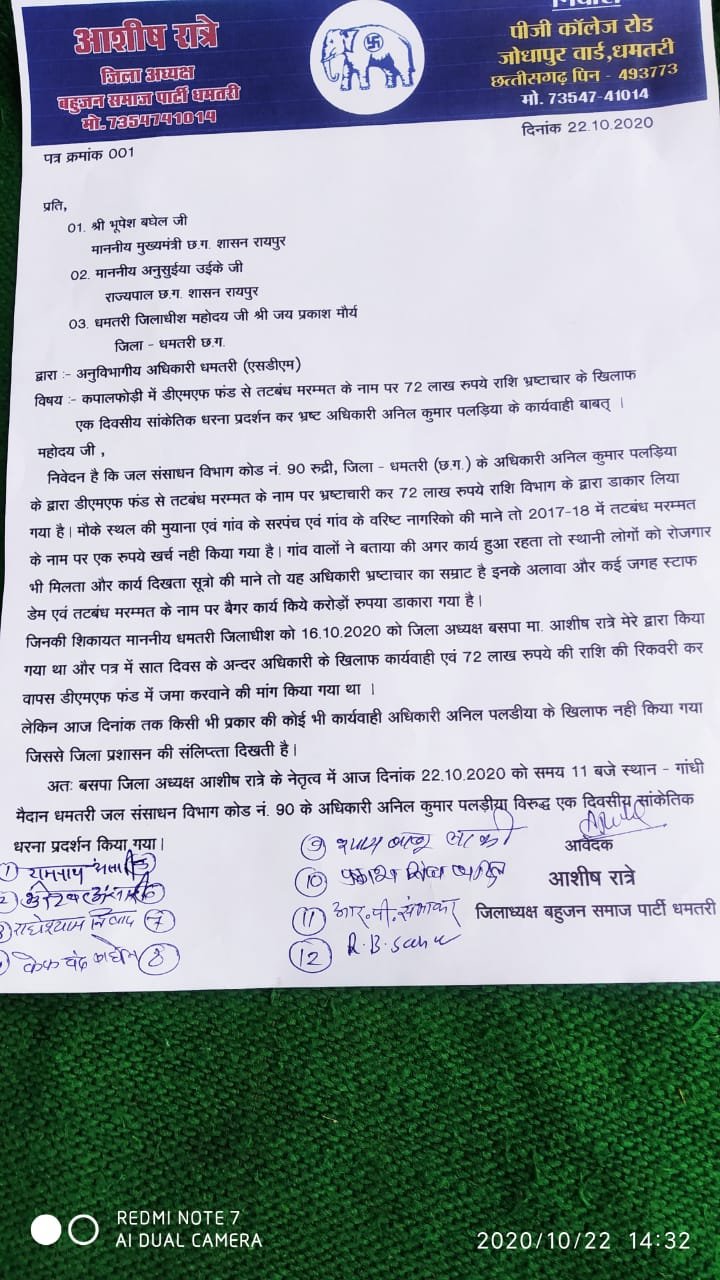 आशीष रात्रे
जिला अध्यक्ष
बहुजन समाज पार्टी धमतरी
मो. 7354741014
पीजी कॉलेज रोड
जोधापुर वार्ड,धमतरी
छत्तीसगढ़ पिन - 493773
मो. 73547-41014
दिनांक 22.10.2020
पत्र क्रमांक 001
प्रति,
01. श्री भूपेश बघेल जी
माननीय मुख्यमंत्री छ.ग. शासन रायपुर
02. माननीय अनुसुईया उईके जी
राज्यपाल छ.ग. शासन रायपुर
03. धमतरी जिलाधीश महोदय जी श्री जय प्रकाश मौर्य
जिला - धमतरी छ.ग.
द्वारा :- अनुविभागीय अधिकारी धमतरी (एसडीएम)
विषय :- कपालफोड़ी में डीएमएफ फंड से तटबंध मरम्मत के नाम पर 72 लाख रुपये राशि भ्रष्टाचार के खिलाफ
एक दिवसीय सांकेतिक धरना प्रदर्शन कर भ्रष्ट अधिकारी अनिल कुमार पलड़िया के कार्यवाही बाबत् ।
महोदय जी ,
निवेदन है कि जल संसाधन विभाग कोड नं. 90 रुद्री, जिला - धमतरी (छ.ग.) के अधिकारी अनिल कुमार पलड़िया
के द्वारा डीएमएफ फंड से तटबंध मरम्मत के नाम पर भ्रष्टाचारी कर 72 लाख रुपये राशि विभाग के द्वारा डाकार लिया
गया है। मौके स्थल की मुयाना एवं गांव के सरपंच एवं गांव के वरिष्ट नागरिको की माने तो 2017-18 में तटबंध मरम्मत
के नाम पर एक रुपये खर्च नही किया गया है। गांव वालों ने बताया की अगर कार्य हुआ रहता तो स्थानी लोगों को रोजगार
भी मिलता और कार्य दिखता सूत्रो की माने तो यह अधिकारी भ्रष्टाचार का सम्राट है इनके अलावा और कई जगह स्टाफ
डेम एवं तटबंध मरम्मत के नाम पर बैगर कार्य किये करोड़ों रुपया डाकारा गया है।
जिनकी शिकायत माननीय धमतरी जिलाधीश को 16.10.2020 को जिला अध्यक्ष बसपा मा. आशीष रात्रे मेरे द्वारा किया
गया था और पत्र में सात दिवस के अन्दर अधिकारी के खिलाफ कार्यवाही एवं 72 लाख रुपये की राशि की रिकवरी कर
वापस डीएमएफ फंड में जमा करवाने की मांग किया गया था ।
लेकिन आज दिनांक तक किसी भी प्रकार की कोई भी कार्यवाही अधिकारी अनिल पलडीया के खिलाफ नही किया गया
जिससे जिला प्रशासन की संलिप्तता दिखती है।
अतः बसपा जिला अध्यक्ष आशीष रात्रे के नेतृत्व में आज दिनांक 22.10.2020 को समय 11 बजे स्थान - गांधी
मैदान धमतरी जल संसाधन विभाग कोड नं. 90 के अधिकारी अनिल कुमार पलड़ीया विरुद्ध एक दिवसीय सांकेतिक
धरना प्रदर्शन किया गया।
आवेदक
आशीष रात्रे
जिलाध्यक्ष बहुजन समाज पार्टी धमतरी
1
2
राधेश्याम
7
8
9
10
11 आर.पी. संभाकर
12 R.B.Sahu
REDMI NOTE 7
AI DUAL CAMERA
2020/10/22 14:32